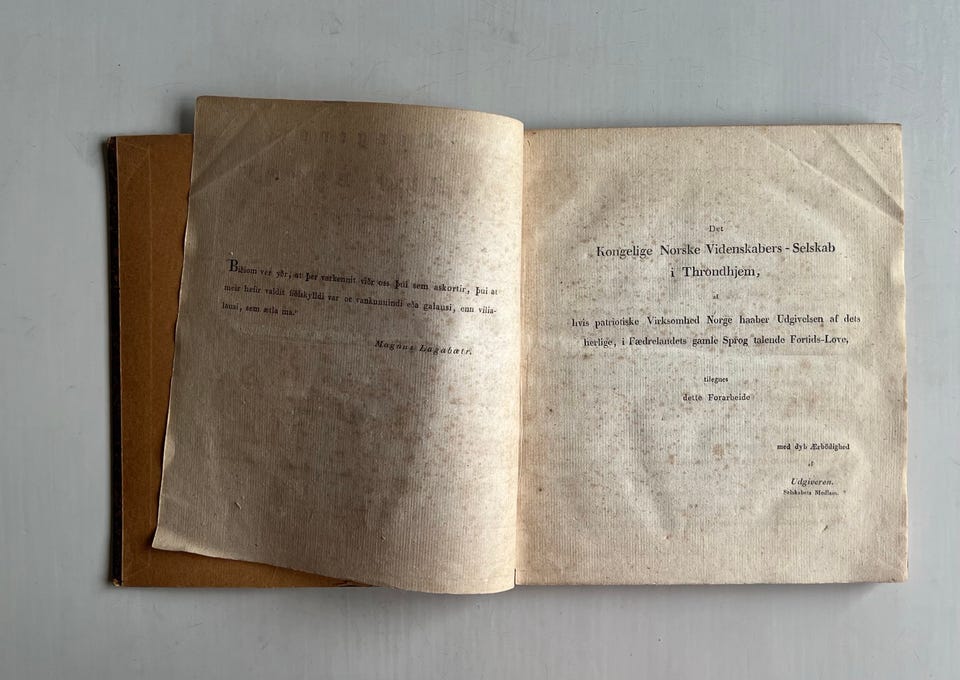 Biðiom ver yðr, at þer varkennit viðr oss þvi sem askortir, þui at
meir hefir valdit fiölskylldi var oc vankunnindi eða galausi, enn vilia-
lausi, sem ætla ma.
Magnus Lagabætr.
Det
Kongelige Norske Videnskabers-Selskab
i Throndhjem,
af
hvis patriotiske Virksomhed Norge haaber Udgivelsen af dets
herlige, i Fædrelandets gamle Sprog talende Fortids-Love,
tilegnes
dette Forarbeide
med dyb Ærbödighed
af
Udgiveren.
Selskabets Medlem.